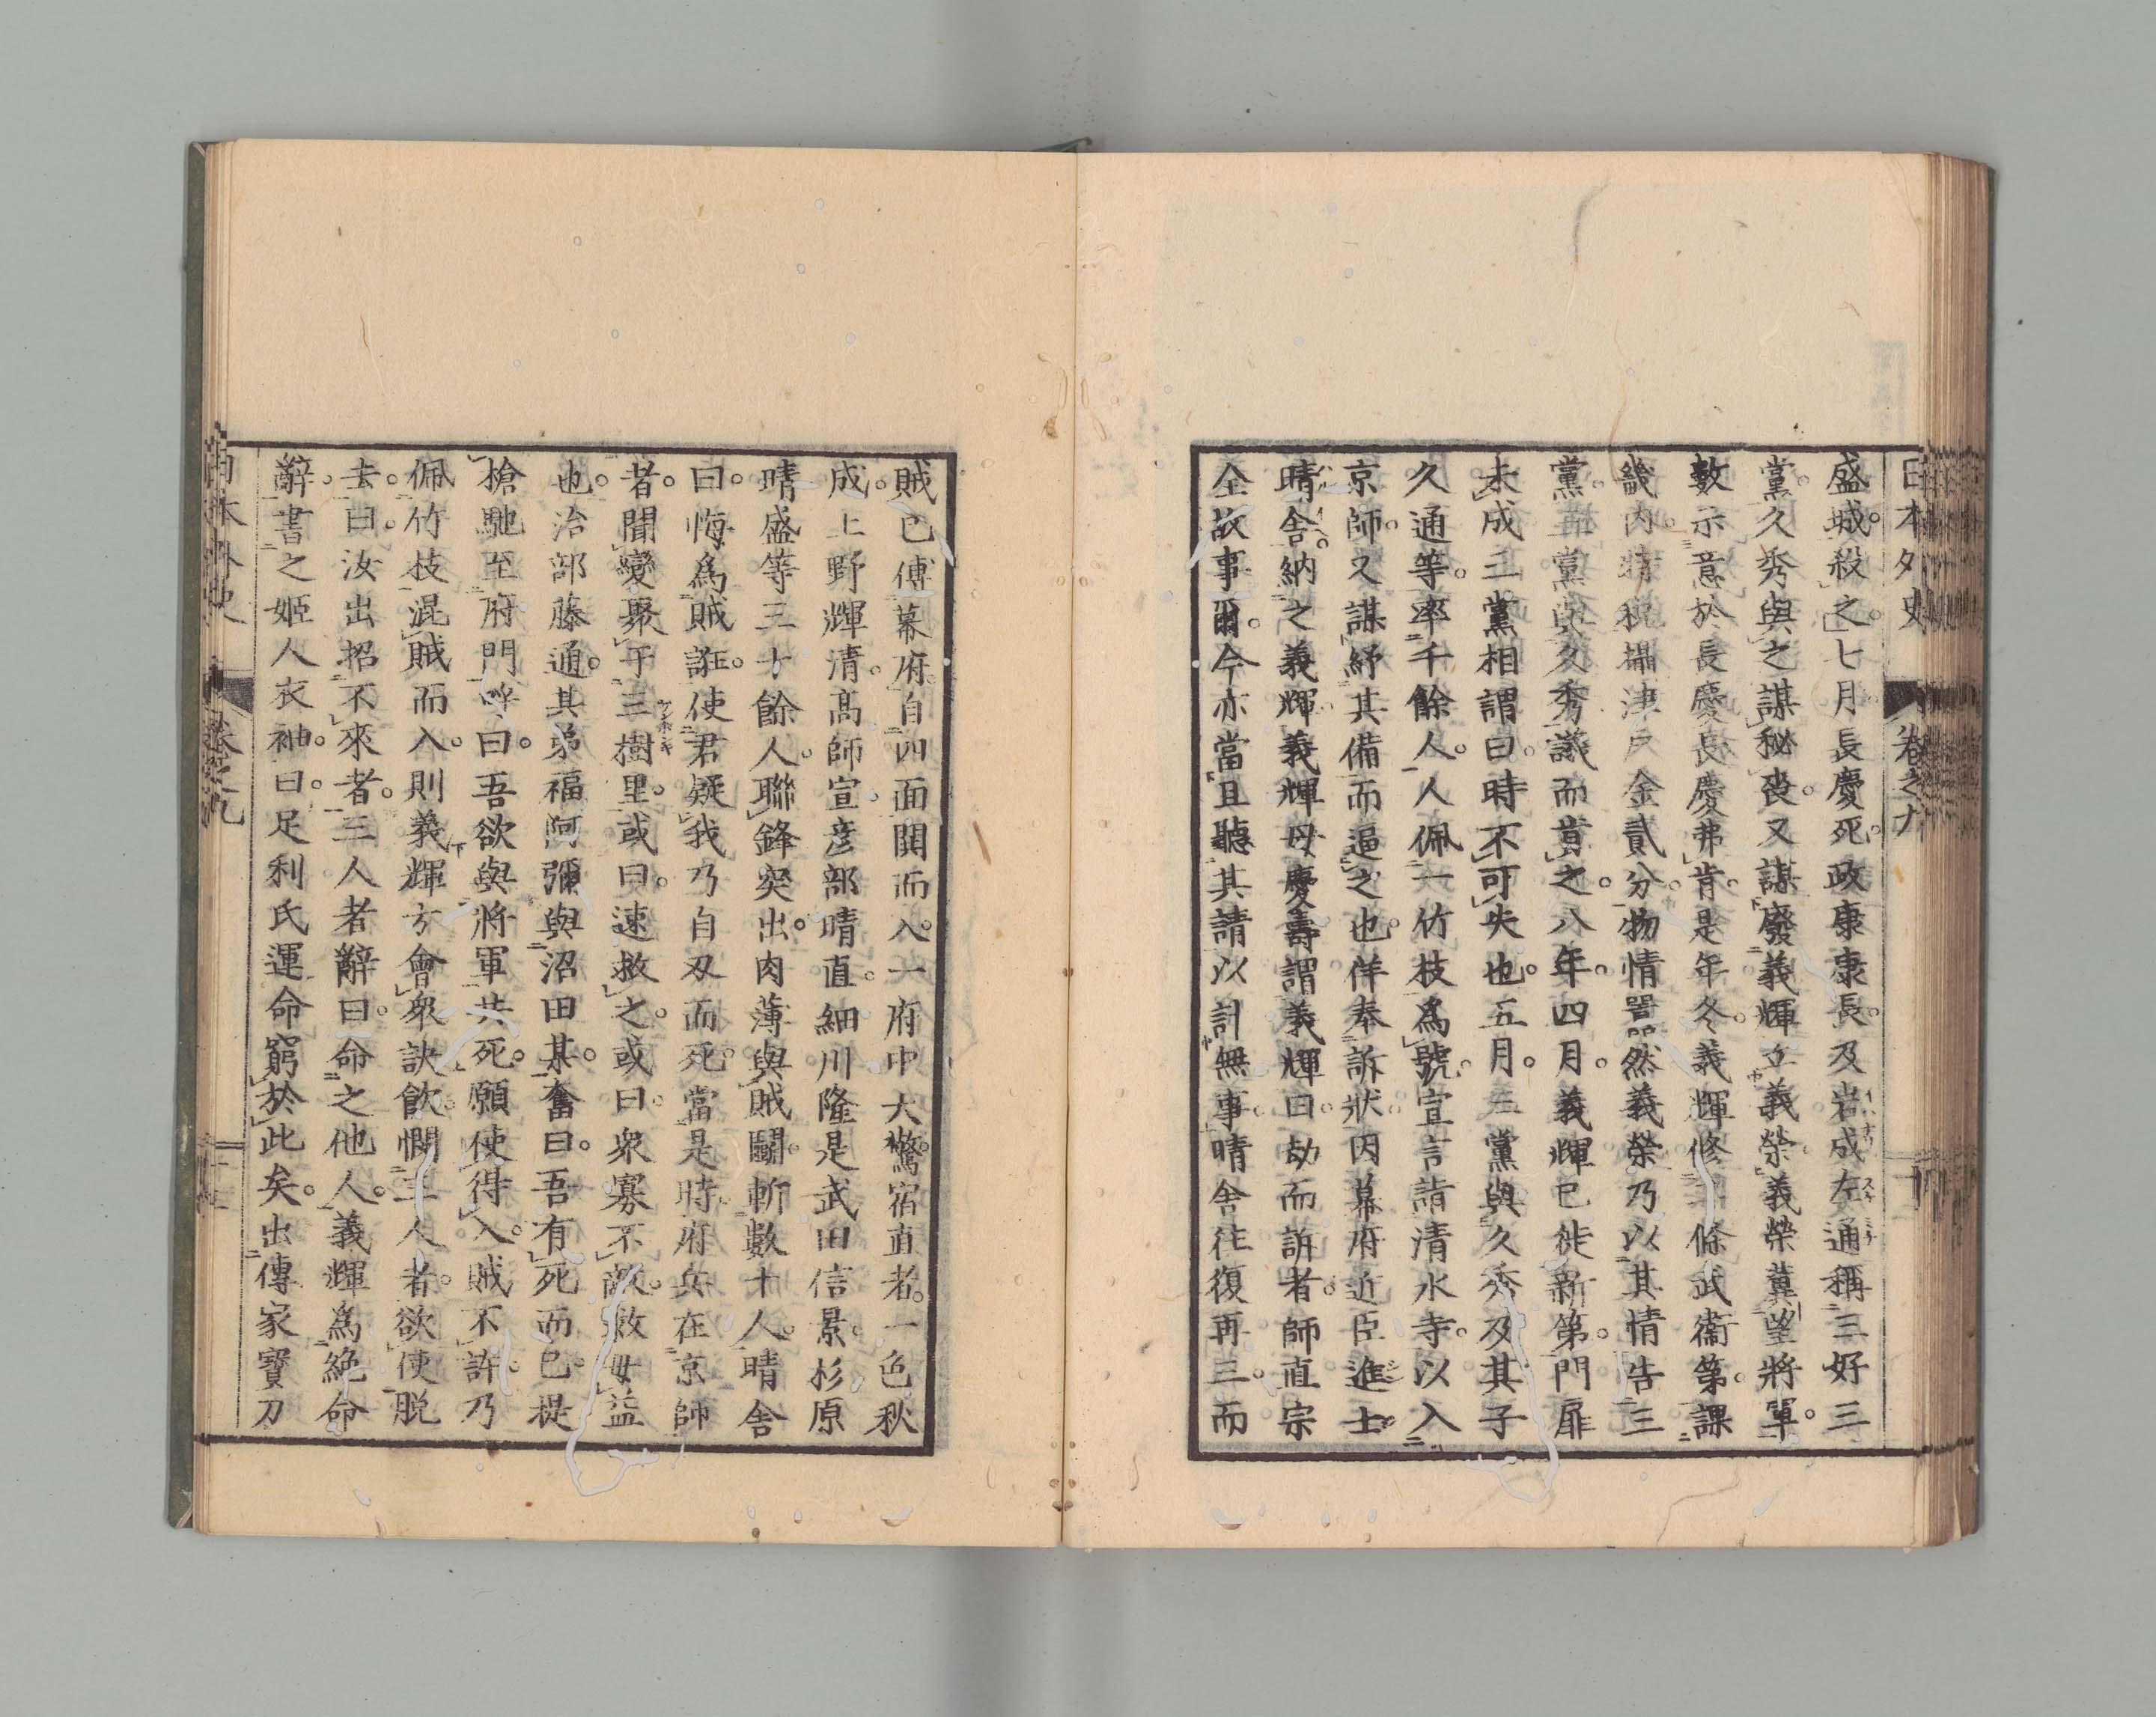 日本外史 卷之九
盛城。殺之。七月長慶死。政康康長。及岩成左通稱三好三
黨。久秀與之謀秘喪。又謀廢義輝立義榮。義榮冀望將軍。
數示意於長慶。長慶弗肯。是年冬。義輝修二條武衞第。課
畿内。精税攝津戸金貳分。物情囂然。義榮乃以其情告三
黨。三黨與久秀議而賁之。八年。四月。義輝已徙新第。門扉
未成。三黨相謂曰。時不可失也。五月。三黨與久秀及其子
久通等。率千餘人。人佩一竹枝爲號。宣言請清水寺。以入
京師。又謀紓其備而逼之也。佯奉訴狀。因幕府近臣進士
晴舎。納之義輝。義輝母慶壽謂義輝曰。劫而訴者。師直宗
全故事爾。今亦當且聽其請以計無事。晴舎往復再三。而
賊已傅幕府。自四面閧而入。一府中大驚。宿直者。一色秋
成。上野輝清。高師宣。彦部晴直。細川隆是。武田信景。杉原
晴盛等三十餘人。聯鋒突出。肉薄與賊鬭。斬數十人。晴舎
曰。悔為賊誑。使君疑我。乃自刃而死。當是時。府兵在京師
者。聞變聚于三樹里。或曰。速救之。或曰。衆寡不敵。救毋益
也。治部藤通。其弟福阿彌。與沼田某。奮曰。吾有死而已。提
槍馳至府門。呼曰。吾欲與將軍共死。願使得入。賊不許。乃
佩竹枝。混賊而入。則義輝方會衆訣飲。憫三人者。欲使脱
去。曰。汝出招不來者。三人者辭曰。命之他人。義輝為絶命
辭。書之姫人衣袖。曰。足利氏運命窮於此矣。出傳家寶刀
日本外史 卷之九